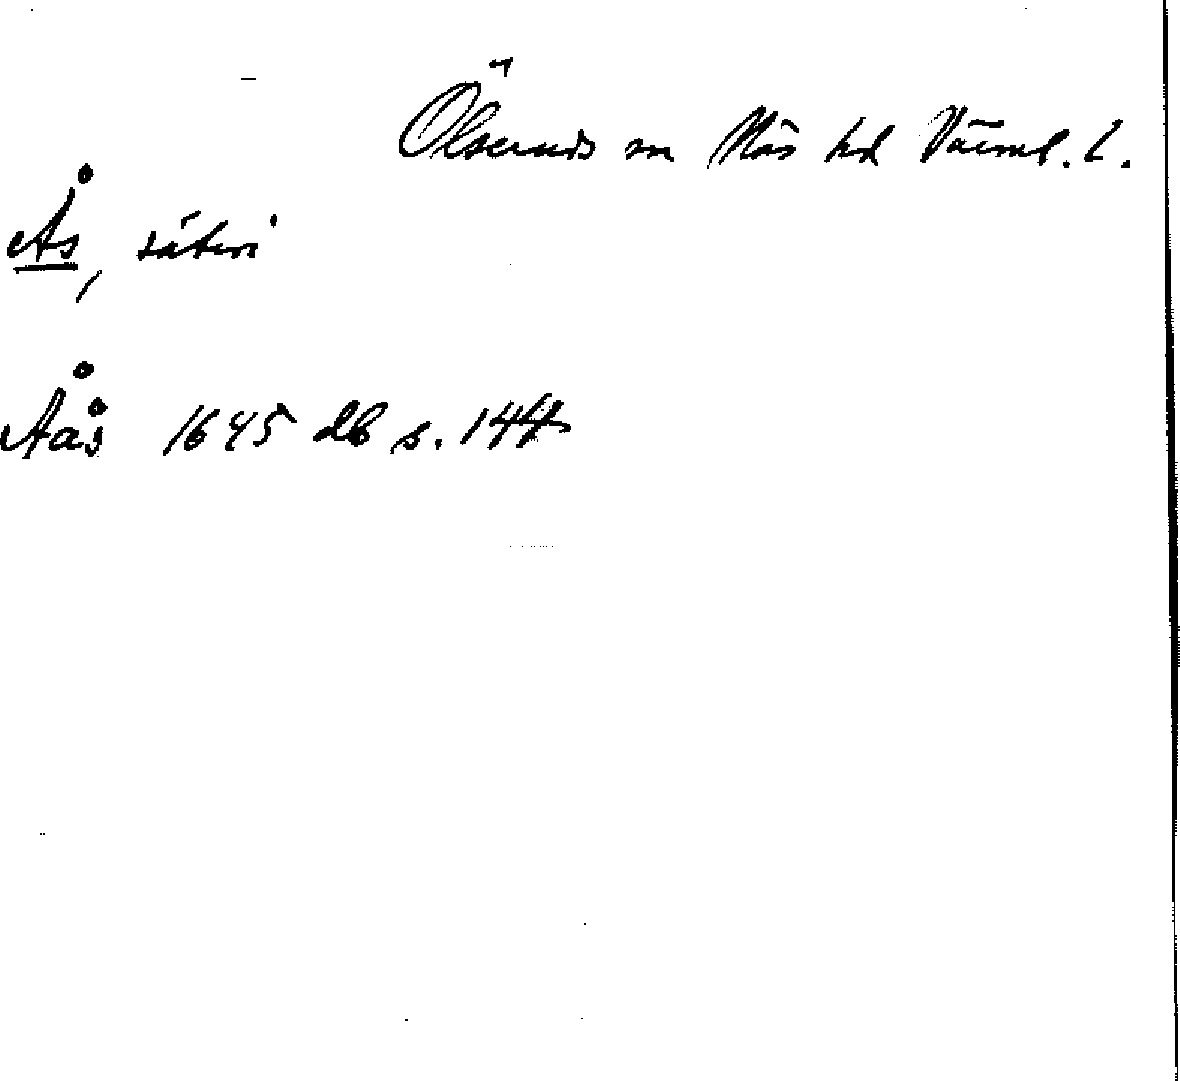 Ölseruds sn Näs hd Värml. l.
Ås, säteri
Åås 1645 db s. 144